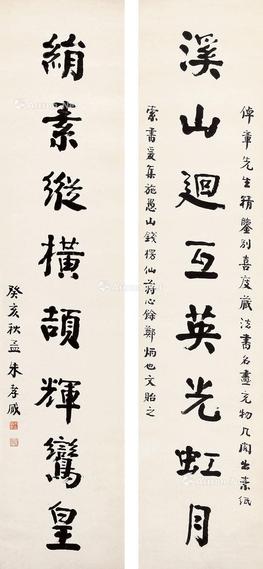 倬章先生精鑒別喜庋藏法書名畫充物几閣出素紙
溪山迴互英光虹月
索書爰集施愚山錢楞仙蔣心餘鄭炳也文貽之
絹素縱橫頡輝鸞皇
癸亥秋孟朱孝臧